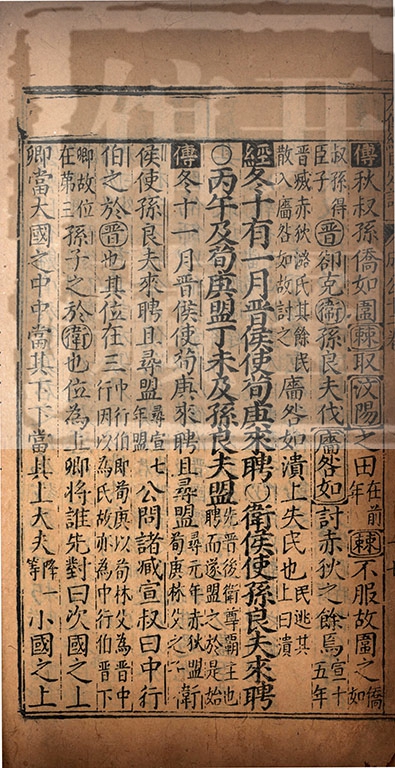 傳秋叔孫僑如圍棘取汶陽之田在前年棘不服故圍之僑如
叔孫得臣子晉郤克衛孫良夫伐廧咎如討赤狄之餘焉宣十五年
晉烕赤狄潞氏其餘民散入廧咎如故討之廧咎如潰上失民也民逃其上曰潰
經冬十有一月晉侯使荀庚來聘○衛侯使孫良夫來聘
○丙午及荀庚盟丁未及孫良夫盟先晉後衛尊霸主也聘而遂盟之於是始
傳冬十一月晉侯使荀庚來聘且尋盟尋元年赤狄盟荀庚林父之子衛
侯使孫良夫來聘且尋盟尋宣七年盟公問諸臧宣叔曰中行
伯之於晉也其位在三中行伯即荀庚以荀林父為晉中行因以為氏故亦為中行伯晉下
卿故位在第三孫子之於衛也位為上卿將誰先對曰次國之上
卿當大國之中中當其下下當其上大夫降一等小國之上